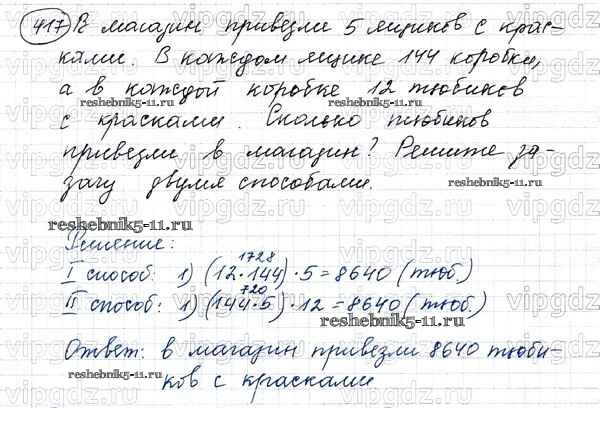 417 В магазин привезли 5 ящиков с крас-
ками. В каждом ящике 144 коробки,
а в каждой коробке 12 тюбиков
reshebnik5-11.ru. reshebnik5-11.ru.
с красками. Сколько тюбиков
привезли в магазин? Решите за-
дачу двумя способами.
reshebnik5-11.ru.
reshebnik5-11.ru.
Решение:
1728
I способ: 1) (12·144)·5=8640 (тюб.)
720
II способ: 1) (144·5)·12=8640 (тюб.)
reshebnik5-11.ru.
Ответ: в магазин привезли 8640 тюби-
reshebnik5-11.ru.
ков с красками
reshebnik5-11.ru.
vipgdz.ru